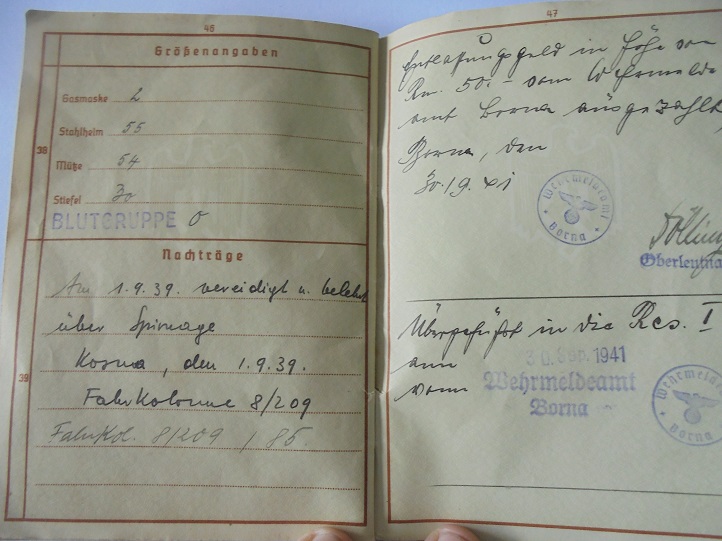 46
Größenangaben
Gasmaske 2
Stahlhelm 55
38
Mütze 54
Stiefel 30
BLUTGRUPPE O
Nachträge
Am 1.9.39. vereidigt u. belehrt
über Spionage
Korna, den 1.9.39.
39
Fahrkolonne 8/209
Fahrkol. 8/209 / 85.
47
Entlassungsgeld in Höhe von
Rm. 50.- vom Wehrmelde
amt Borna ausgezahlt
Borna, den
30.9.41
Wehrmeldeamt
Borna
Oberleutna
Übergeführt in die Res. I
am 30. Sep. 1941
vom Wehrmeldeamt
Borna
Wehrmeldeamt
Borna